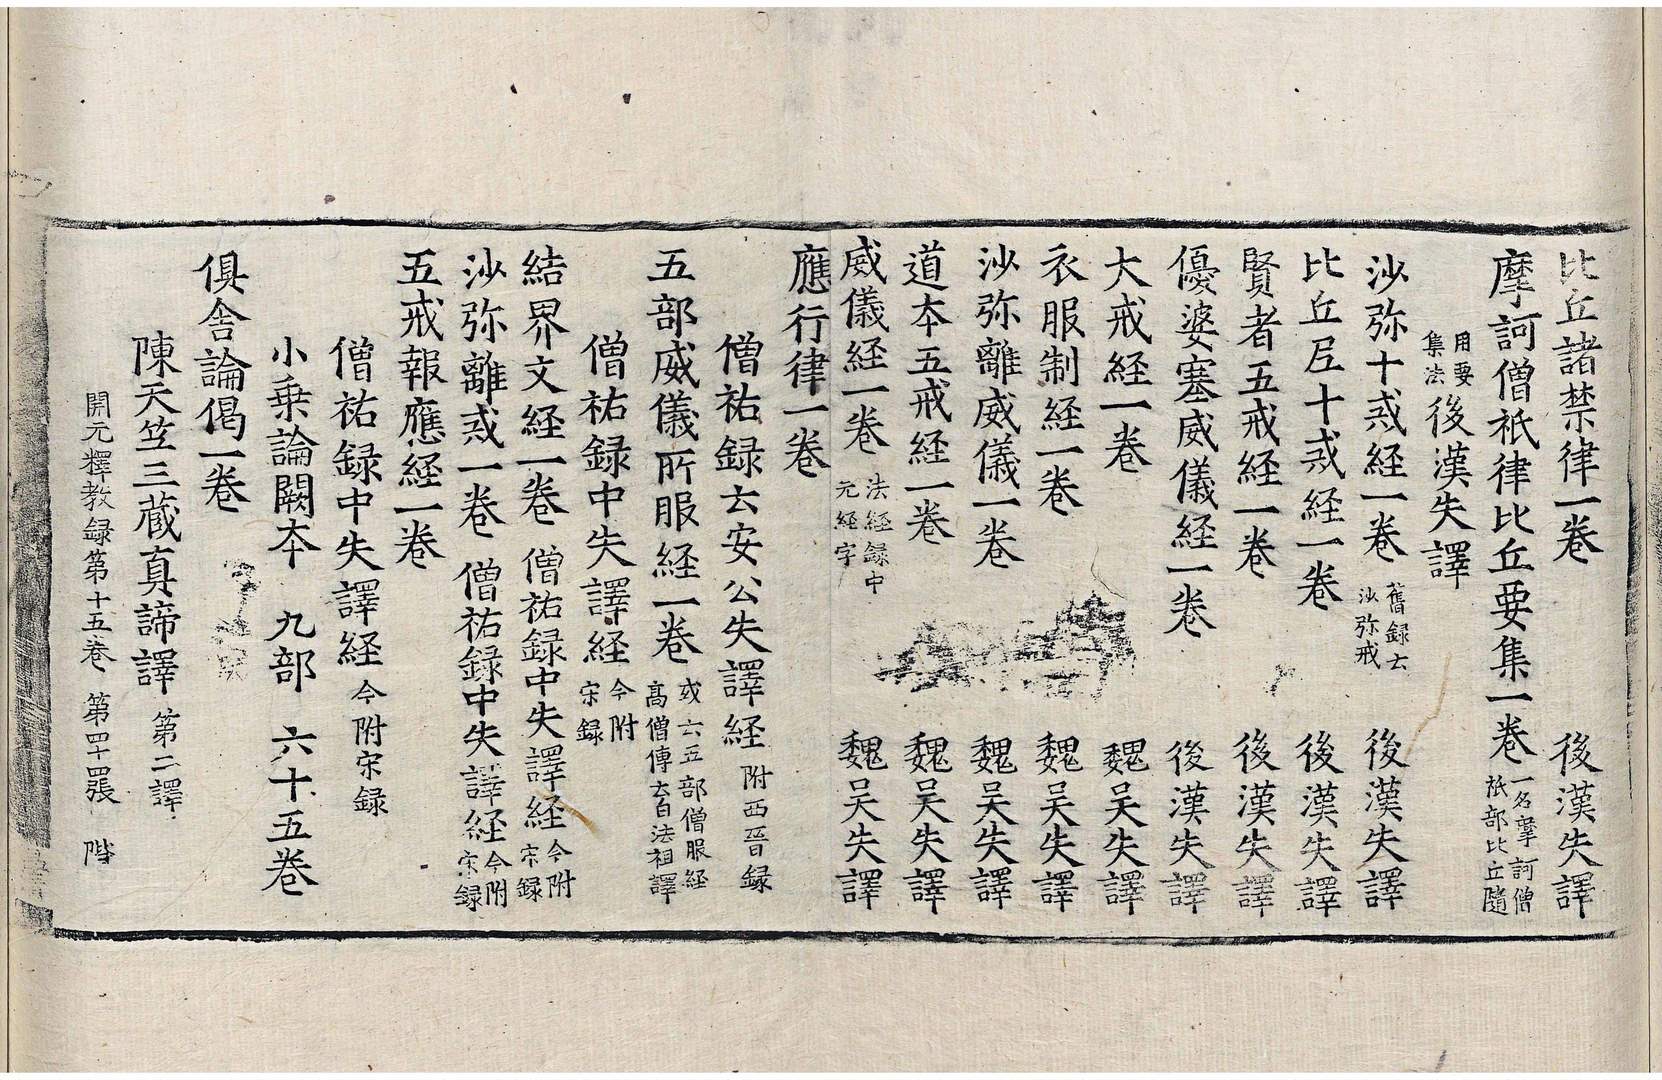 比丘諸禁律一卷　後漢失譯
摩訶僧祇律比丘要集一卷　一名摩訶僧祇部比丘隨
用要集法　後漢失譯
沙弥十戒経一卷　舊録云沙弥戒　後漢失譯
比丘尼十戒経一卷　後漢失譯
賢者五戒経一卷　後漢失譯
優婆塞威儀経一卷　後漢失譯
大戒経一卷　魏吴失譯
衣服制経一卷　魏吴失譯
沙弥離威儀一卷　魏吴失譯
道夲五戒経一卷　魏吴失譯
威儀経一卷　法経録中元経字　魏吴失譯
應行律一卷
僧祐録云安公失譯経　附西晉録
五部威儀所服経一卷　或云五部僧服経高僧傳云自法祖譯
僧祐録中失譯経　今附宋録
結界文経一卷　僧祐録中失譯経　今附宋録
沙弥離戒一卷　僧祐録中失譯経　今附宋録
五戒報應経一卷
僧祐録中失譯経　今附宋録
小乗論闕夲　九部　六十五卷
俱舎論偈一卷
陳天竺三蔵真諦譯　第二譯
開元釋教録第十五卷　第四十四張　階